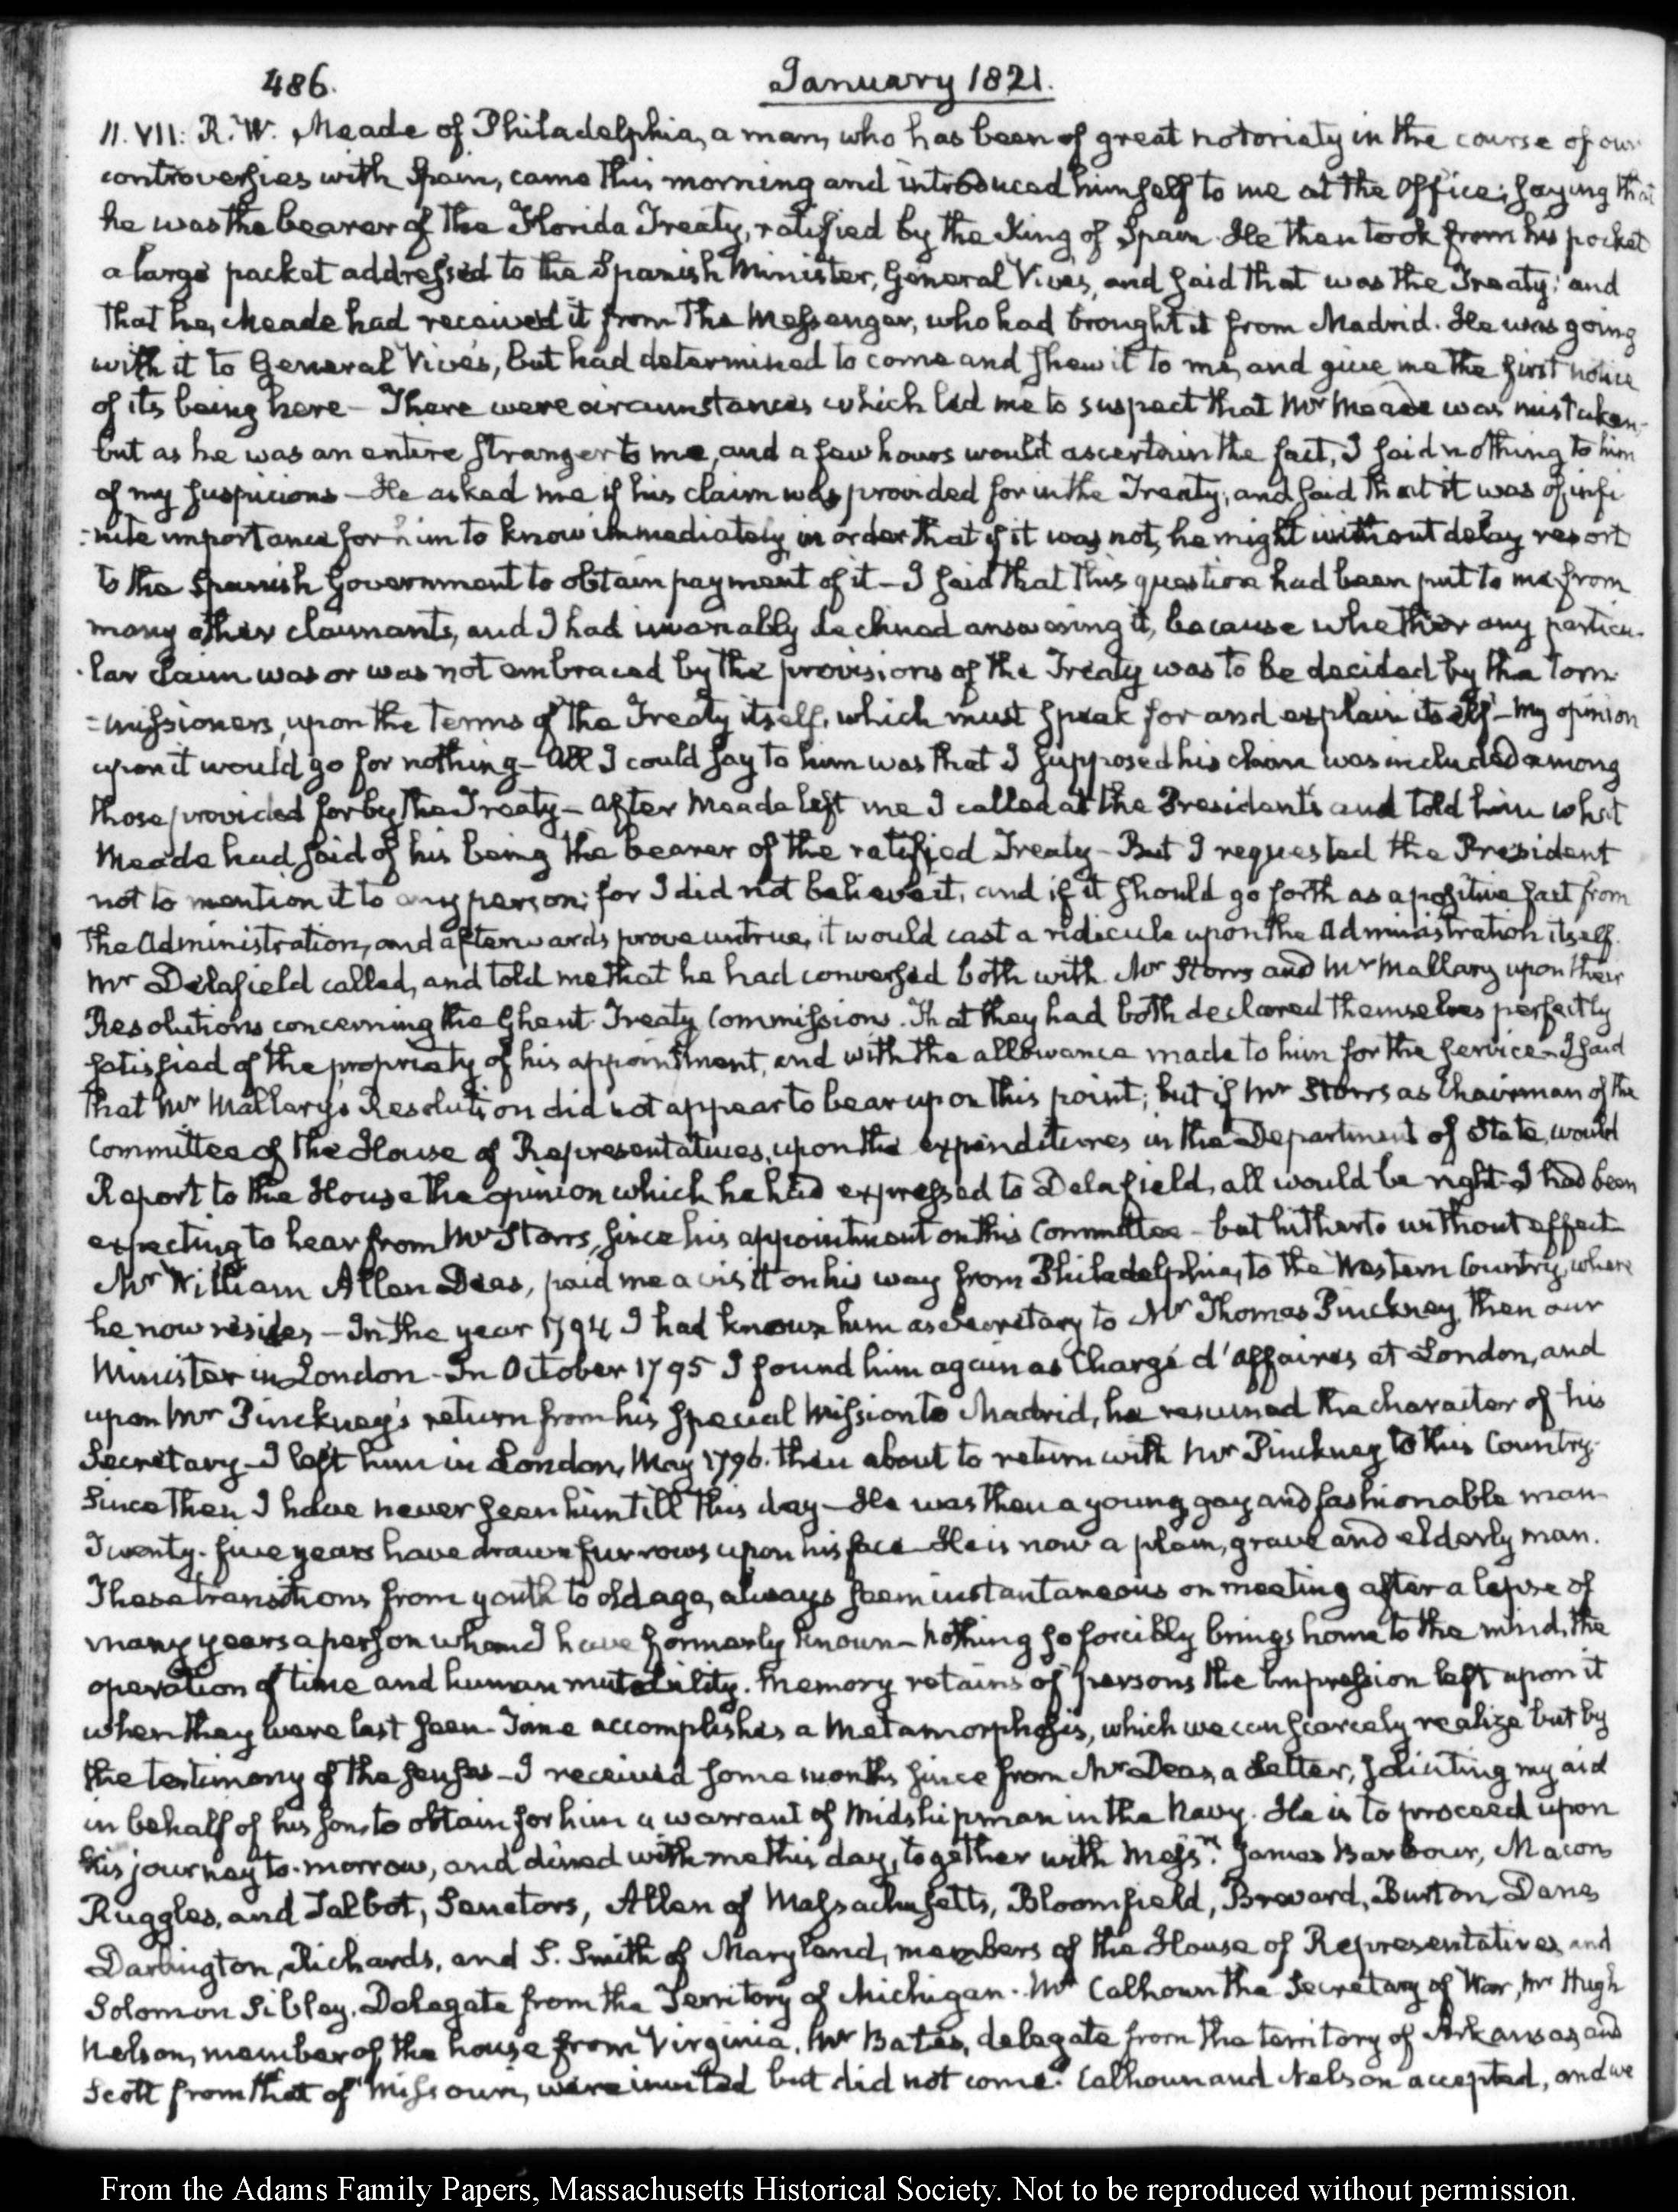 486.
January 1821.
11. VII: R. W. Meade of Philadelphia, a man, who has been of great notoriety in the course of our
controversies with Spain, came this morning and introduced himself to me at the Office; saying that
he was the bearer of the Florida Treaty, ratified by the King of Spain. He then took from his pocket
a large packet addressed to the Spanish Minister, General Vivés, and said that was the Treaty; and
that he, Meade had received it from the Messenger, who had brought it from Madrid. He was going
with it to General Vivés, but had determined to come and shew it to me, and give me the first notice
of its being here — There were circumstances which led me to suspect that Mr Meade was mistaken,
but as he was an entire stranger to me, and a few hours would ascertain the fact, I said nothing to him
of my suspicions — He asked me if his claim was provided for in the Treaty, and said that it was of infi
:nite importance for him to know immediately, in order that if it was not, he might without delay resort
to the Spanish Government to obtain payment of it — I said that this question had been put to me from
many other claimants, and I had invariably declined answering it, because whether any particu-
-lar claim was or was not embraced by the provisions of the Treaty was to be decided by the Com
=missioners, upon the terms of the Treaty itself, which must speak for and explain itself — My opinion
upon it would go for nothing — All I could say to him was that I supposed his claim was included among
those provided for by the Treaty — After Meade left me I called at the President's and told him what
Meade had said of his being the bearer of the ratified Treaty — But I requested the President
not to mention it to any person; for I did not believe it, and if it should go forth as a positive fact from
the Administration, and afterwards prove untrue, it would cast a ridicule upon the Administration itself.
Mr Delafield called, and told me that he had conversed both with Mr Storrs and Mr Mallary upon their
Resolutions concerning the Ghent Treaty Commissions. That they had both declared themselves perfectly
satisfied of the propriety of his appointment, and with the allowance made to him for the service — I said
that Mr Mallary's Resolution did not appear to bear upon this point; but if Mr Storrs as Chairman of the
Committee of the House of Representatives, upon the expenditures in the Department of State, would
Report to the House the opinion which he had expressed to Delafield, all would be right — I had been
expecting to hear from Mr Storrs, since his appointment on this Committee — but hitherto without effect
Mr William Allen Deas, paid me a visit on his way from Philadelphia, to the Western Country, where
he now resides — In the year 1794 I had known him as Secretary to Mr Thomas Pinckney, then our
Minister in London — In October 1795 I found him again as Chargé d'Affaires at London, and
upon Mr Pinckney's return from his special Mission to Madrid, he resumed the character of his
Secretary — I left him in London, May 1796. then about to return with Mr Pinckney to this Country.
Since then I have never seen him till this day — He was then a young, gay and fashionable man
Twenty-five years have drawn furrows upon his face — He is now a plain, grave and elderly man.
These transitions from youth to old age, always seem instantaneous on meeting after a lapse of
many years a person whom I have formerly known — Nothing so forcibly brings home to the mind, the
operation of time and human mutability. Memory retains of persons the impression left upon it
when they were last seen — Time accomplishes a Metamorphosis, which we can scarcely realize but by
the testimony of the senses — I received some months since from Mr Deas, a Letter, soliciting my aid
in behalf of his son, to obtain for him a warrant of Midshipman in the Navy. He is to proceed upon
his journey to-morrow, and dined with me this day, together with Messrs. James Barbour, Macon,
Ruggles, and Talbot, Senators, Allen of Massachusetts, Bloomfield, Brevard, Burton, Dane,
Darlington, Richards, and S. Smith of Maryland, members of the House of Representatives, and
Solomon Sibley, Delegate from the Territory of Michigan. Mr Calhoun the Secretary of War, Mr Hugh
Nelson, member of the house from Virginia, Mr Bates, delegate from the territory of Arkansas, and
Scott from that of Missouri, were invited but did not come. Calhoun and Nelson accepted, and we
From the Adams Family Papers, Massachusetts Historical Society. Not to be reproduced without permission.